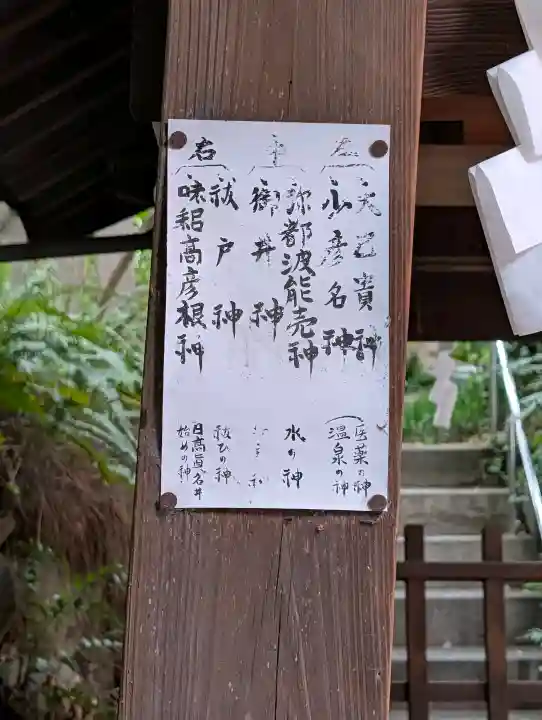 左
大己貴神
少彦名神
主
弥都波能売神
御井神
右
祓戸神
味耜高彦根神
医薬の神
温泉の神
水の神
祓ひの神
日高真名井
始めの神